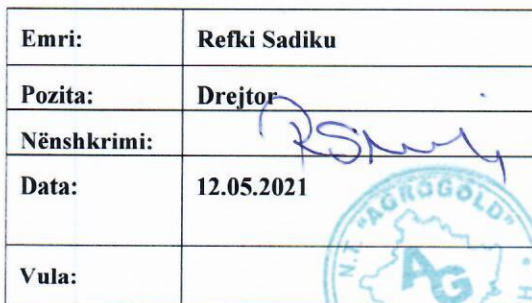 Emri: Refki Sadiku
Pozita: Drejtor
Nënshkrimi:
Data: 12.05.2021
Vula:
N.T. "AGROGOLD"
AG